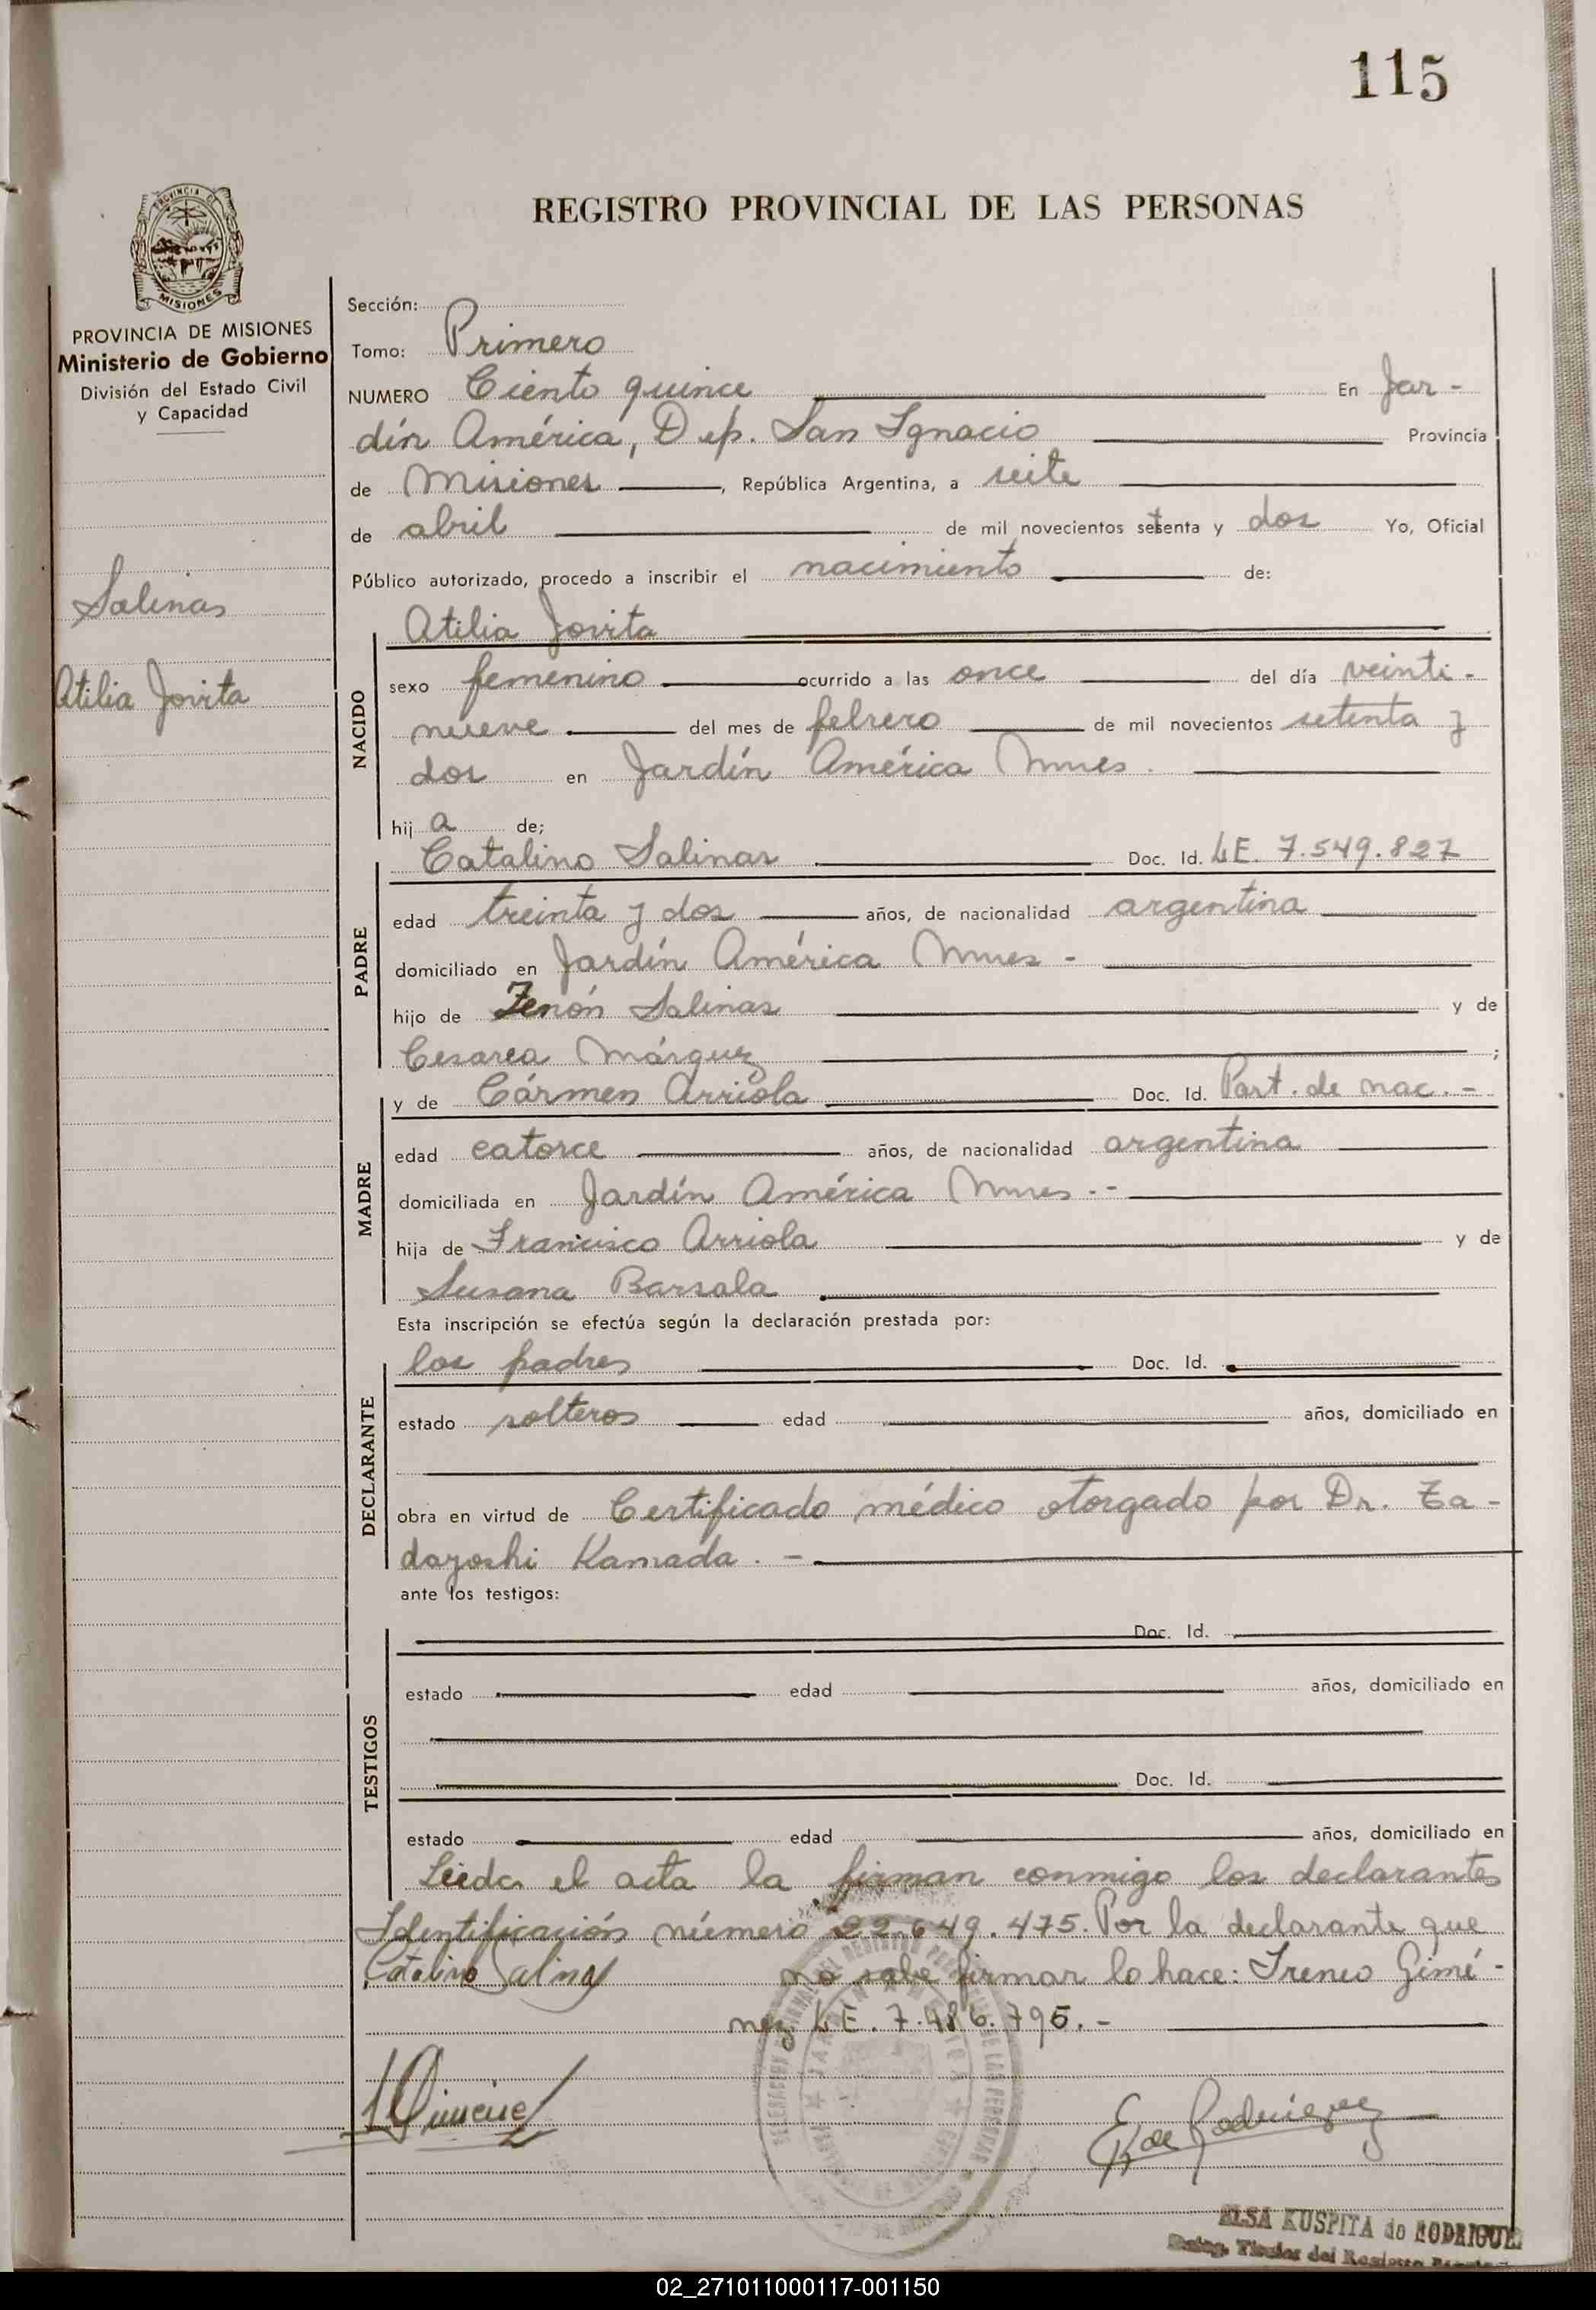 115
REGISTRO PROVINCIAL DE LAS PERSONAS
PROVINCIA
MISIONES
PROVINCIA DE MISIONES
Ministerio de Gobierno
División del Estado Civil
y Capacidad
Salinas
Atilia Jovita
Sección:
Tomo: Primero
NUMERO Ciento quince En Jar-
dín América, Dep. San Ignacio Provincia
de Misiones, República Argentina, a seite
de abril de mil novecientos setenta y dos Yo, Oficial
Público autorizado, procedo a inscribir el nacimiento de:
Atilia Jovita
NACIDO
sexo femenino ocurrido a las once del día veinti-
nueve del mes de febrero de mil novecientos setenta y
dos en Jardín América Mnes.
hij a de;
Catalino Salinas Doc. Id. LE. 7.549.827
PADRE
edad treinta y dos años, de nacionalidad argentina
domiciliado en Jardín América Mnes -
hijo de Zenón Salinas y de
Cesarea Márquez ;
y de Cármen Arriola Doc. Id. Part. de nac. -
MADRE
edad catorce años, de nacionalidad argentina
domiciliada en Jardín América Mnes. -
hija de Francisco Arriola y de
Susana Barsala
Esta inscripción se efectúa según la declaración prestada por:
los padres Doc. Id.
DECLARANTE
estado solteros edad años, domiciliado en
obra en virtud de Certificado médico otorgado por Dr. Ta-
dayoshi Kamada. -
ante los testigos:
Doc. Id.
TESTIGOS
estado edad años, domiciliado en
Doc. Id.
estado edad años, domiciliado en
Leida el acta la firman conmigo los declarantes
Identificación número 22.649.475. Por la declarante que
Catalino Salinas no sabe firmar lo hace: Ireneo Gimé-
nez LE. 7.486.795. -
I Gimenez
E K de Rodriguez
ELSA KUSPITA de RODRIGUE
Titular del Registro
02_271011000117-001150